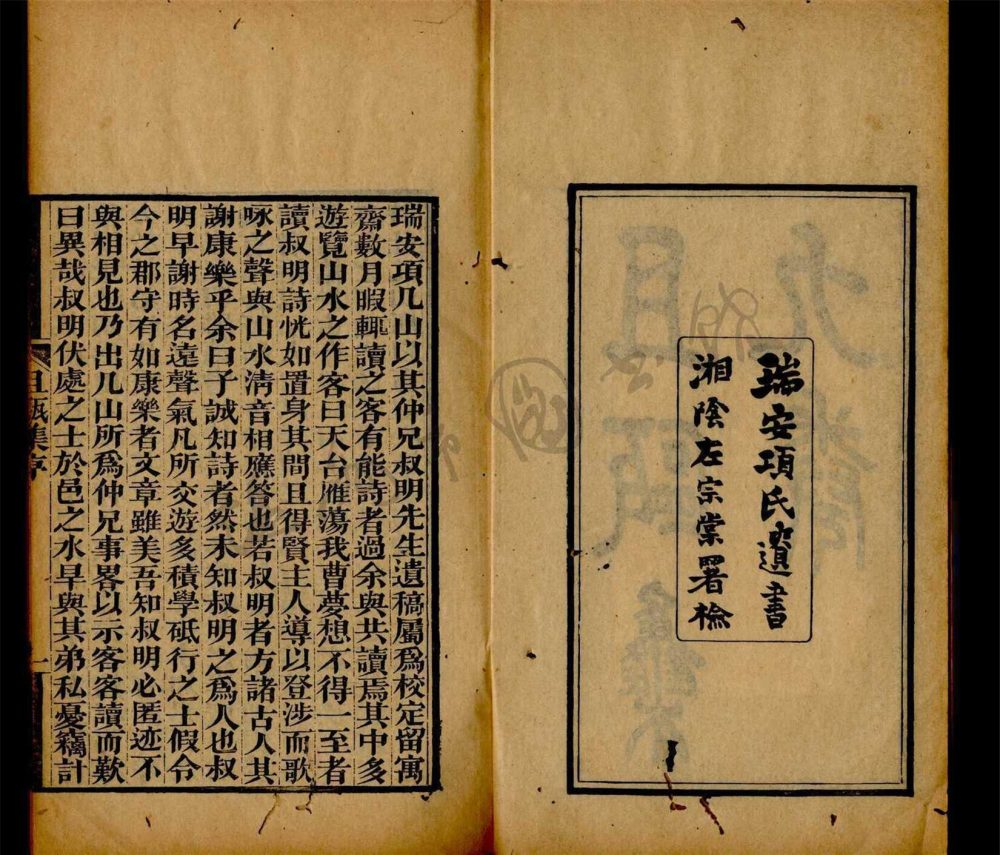 瑞安項氏遺書
湘陰左宗棠署檢
瑞安項几山以其仲兄叔明先生遺稿屬爲校定留寓
齋數月暇輒讀之客有能詩者過余與共讀焉其中多
遊覽山水之作客曰天台雁蕩我曹夢想不得一至者
讀叔明詩恍如置身其間且得賢主人導以登涉而歌
咏之聲與山水清音相應答也若叔明者方諸古人其
謝康樂乎余曰子誠知詩者然未知叔明之爲人也叔
明早謝時名遠聲氣凡所交遊多積學砥行之士假令
今之郡守有如康樂者文章雖美吾知叔明必匿迹不
與相見也乃出几山所爲仲兄事畧以示客客讀而歎
曰異哉叔明伏處之士於邑之水旱與其弟私憂竊計
且甌集序
一